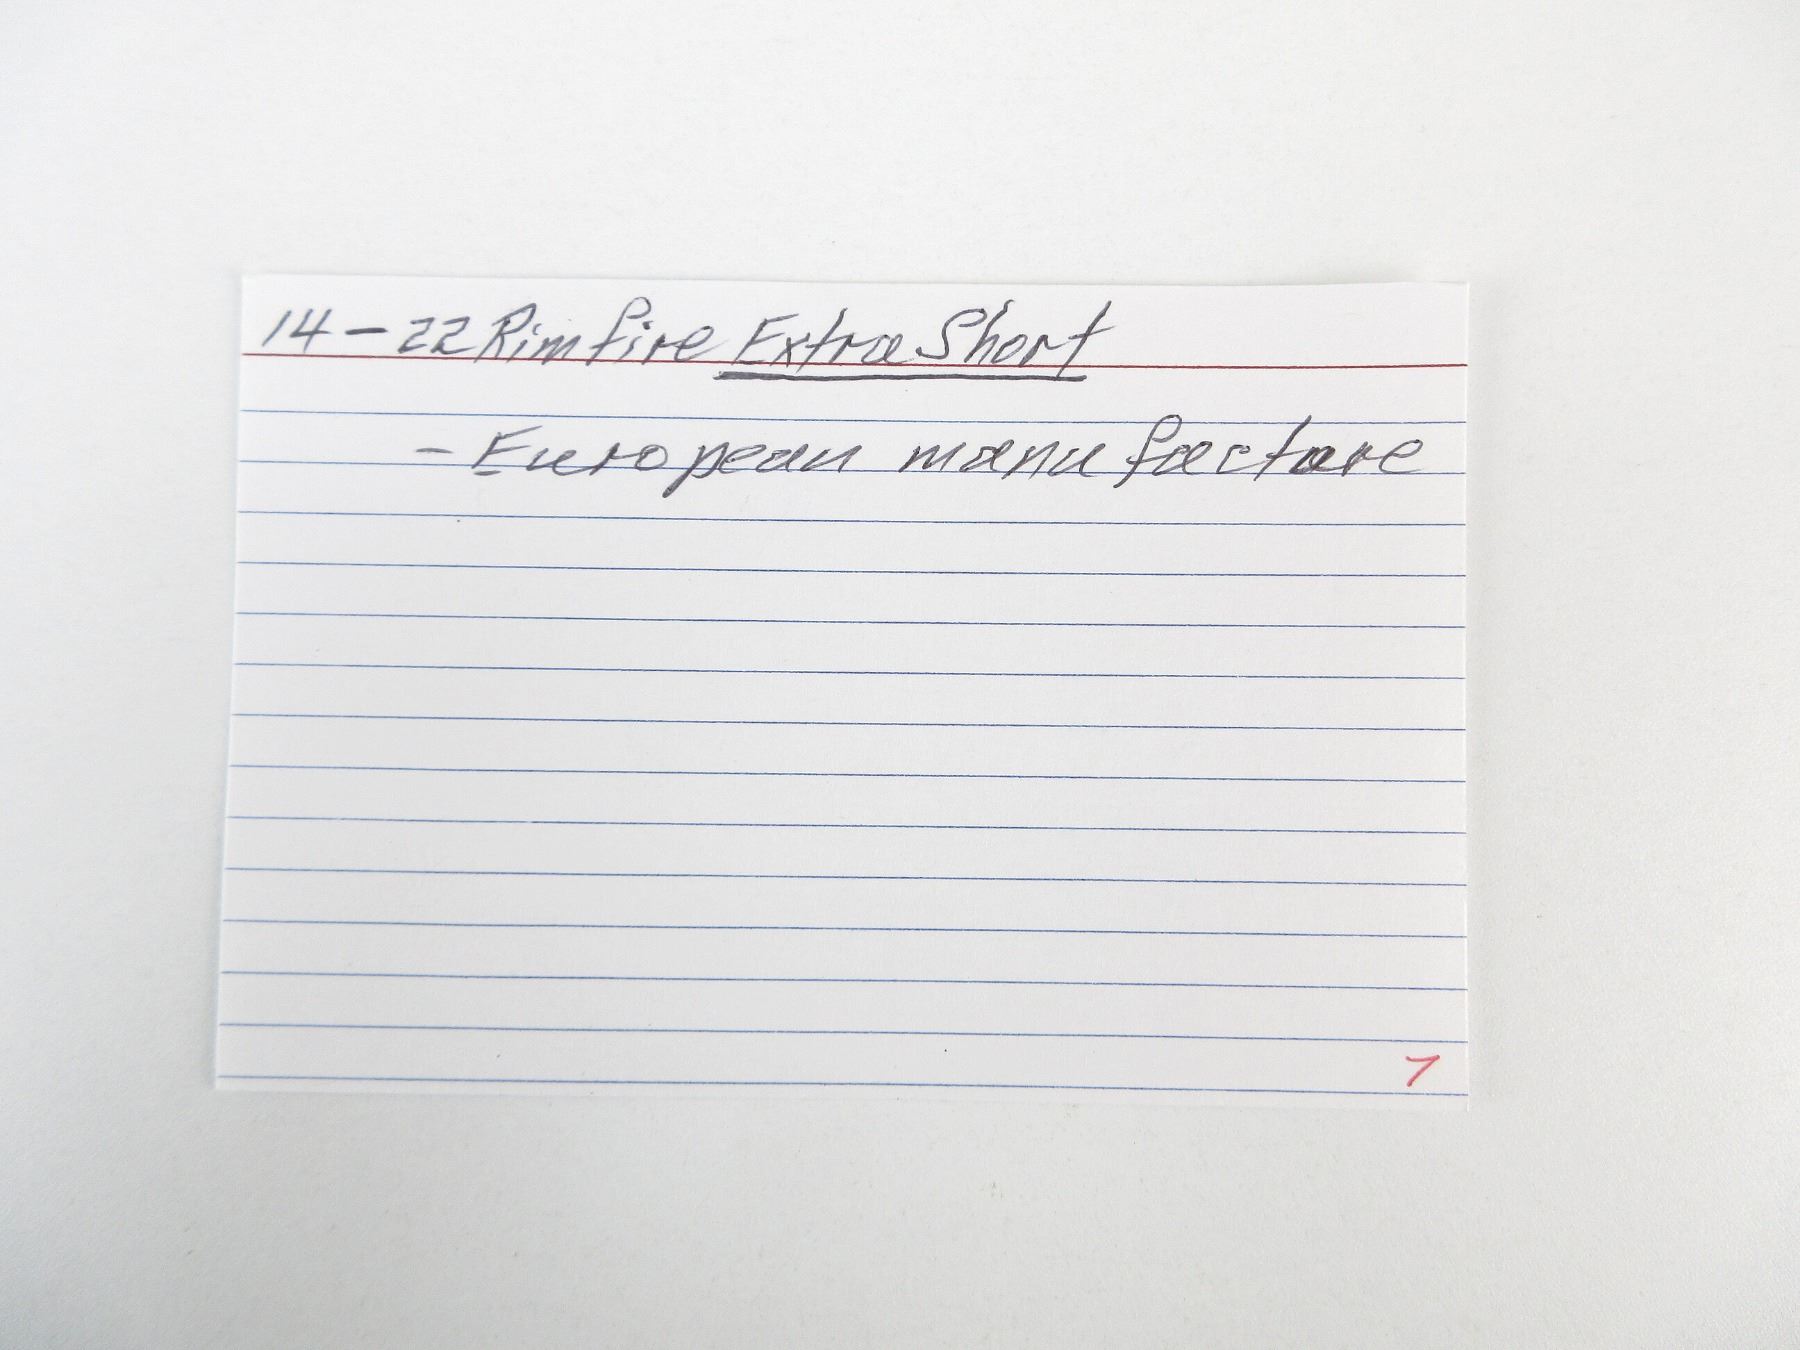 14 - 22 Rimfire Extra Short
- European manufacture
7